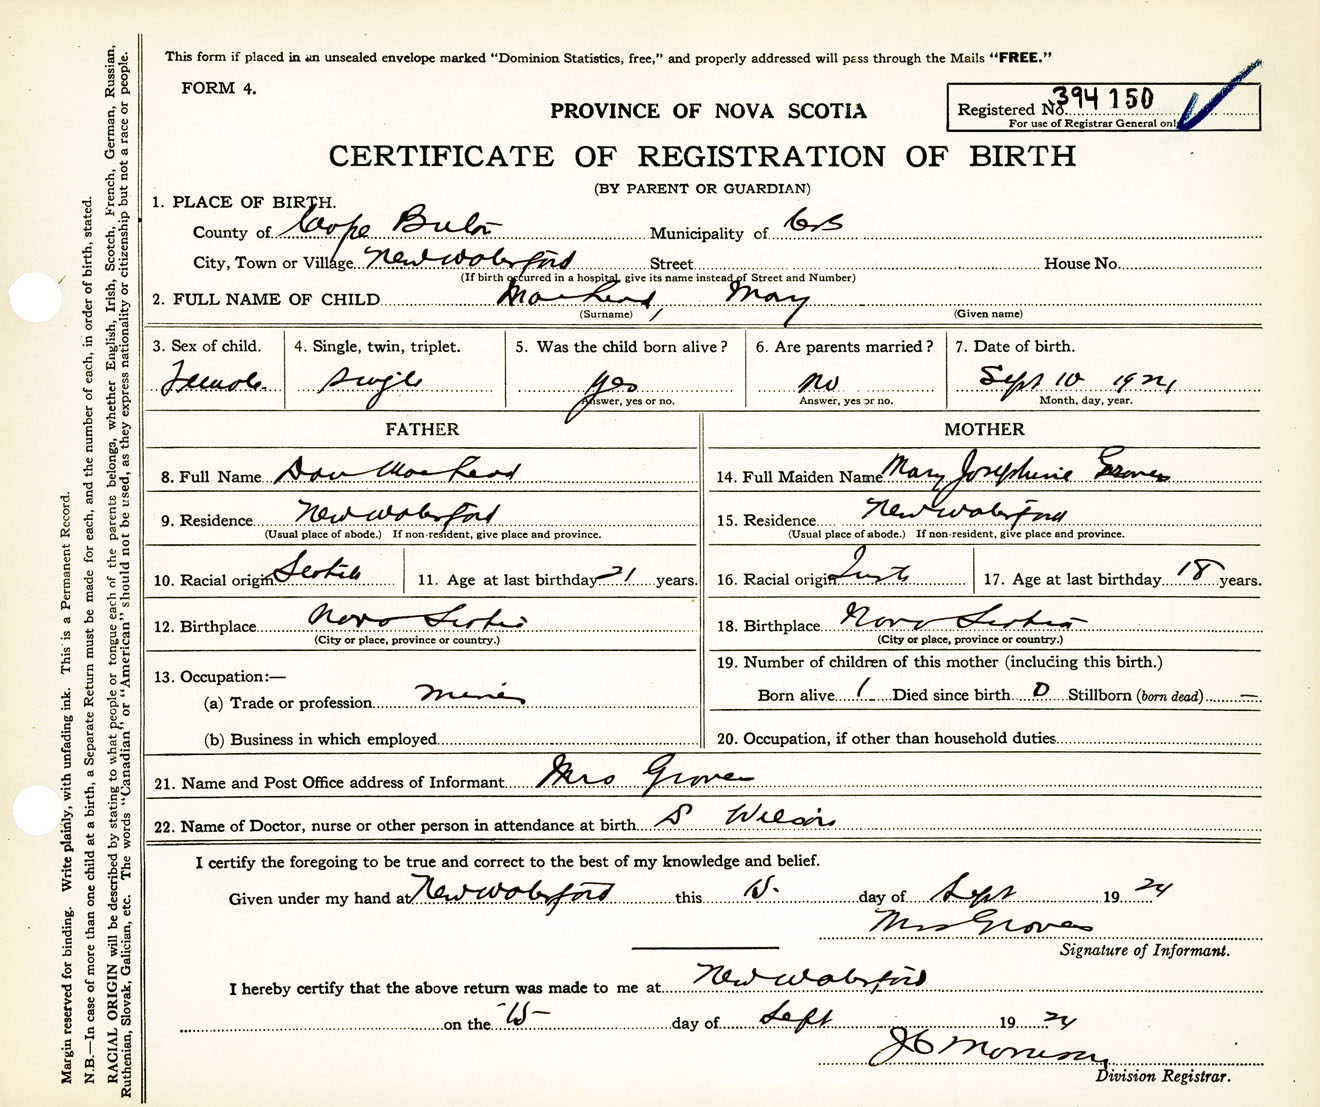 This form if placed in an unsealed envelope marked "Dominion Statistics, free," and properly addressed will pass through the Mails "FREE."
FORM 4.
Registered No. 394 150
For use of Registrar General only
PROVINCE OF NOVA SCOTIA
CERTIFICATE OF REGISTRATION OF BIRTH
(BY PARENT OR GUARDIAN)
1. PLACE OF BIRTH.
County of Cape Breton Municipality of CB
City, Town or Village New Waterford Street House No.
(If birth occurred in a hospital, give its name instead of Street and Number)
2. FULL NAME OF CHILD MacLeod, May
(Surname) (Given name)
3. Sex of child. 4. Single, twin, triplet. 5. Was the child born alive? 6. Are parents married? 7. Date of birth.
Female single yes no Sept 10 1924
Answer, yes or no. Answer, yes or no. Month, day, year.
FATHER
8. Full Name Dan MacLeod
9. Residence New Waterford
(Usual place of abode.) If non-resident, give place and province.
10. Racial origin Scotch 11. Age at last birthday 21 years.
12. Birthplace Nova Scotia
(City or place, province or country.)
13. Occupation:—
(a) Trade or profession miner
(b) Business in which employed
MOTHER
14. Full Maiden Name Mary Josephine Groves
15. Residence New Waterford
(Usual place of abode.) If non-resident, give place and province.
16. Racial origin 17. Age at last birthday 18 years.
18. Birthplace Nova Scotia
(City or place, province or country.)
19. Number of children of this mother (including this birth.)
Born alive 1 Died since birth 0 Stillborn (born dead) —
20. Occupation, if other than household duties
21. Name and Post Office address of Informant Mrs Groves
22. Name of Doctor, nurse or other person in attendance at birth S
I certify the foregoing to be true and correct to the best of my knowledge and belief.
Given under my hand at New Waterford this 15 day of Sept 19 24
Mrs Groves
Signature of Informant.
I hereby certify that the above return was made to me at New Waterford
on the 15 day of Sept 19 24
J C Morrison
Division Registrar.
Margin reserved for binding. Write plainly, with unfading ink. This is a Permanent Record.
N.B.—In case of more than one child at a birth, a Separate Return must be made for each, and the number of each, in order of birth, stated.
RACIAL ORIGIN will be described by stating to what people or tongue each of the parents belongs, whether English, Irish, Scotch, French, German, Russian,
Ruthenian, Slovak, Galician, etc. The words "Canadian" or "American" should not be used, as they express nationality or citizenship but not a race or people.